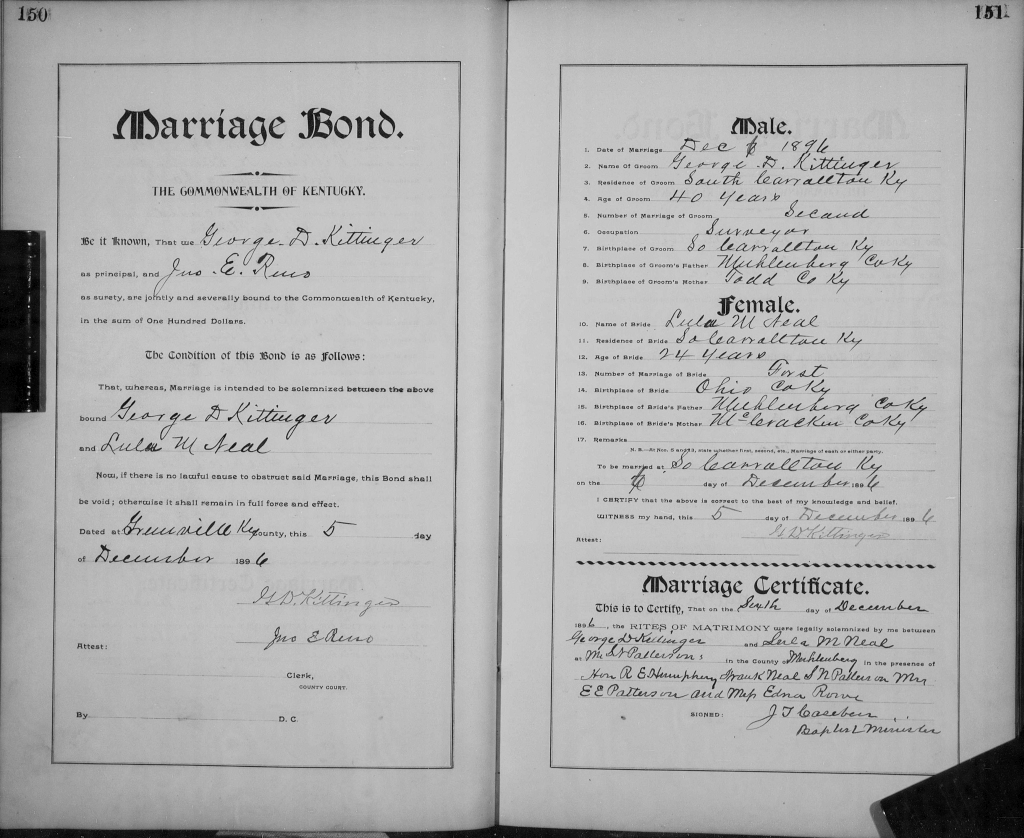 150
Marriage Bond.
THE COMMONWEALTH OF KENTUCKY.
Be it Known, That we George D. Kittinger
as principal, and Jno. E. Reno
as surety, are jointly and severally bound to the Commonwealth of Kentucky,
in the sum of One Hundred Dollars.
The Condition of this Bond is as Follows:
That, whereas, Marriage is intended to be solemnized between the above
bound George D Kittinger
and Lula M Neal
Now, if there is no lawful cause to obstruct said Marriage, this Bond shall
be void; otherwise it shall remain in full force and effect.
Dated at Greenville Ky County, this 5 day
of December 1896
G D. Kittinger
Jno E Reno
Attest:
Clerk,
COUNTY COURT.
By D. C.
151
Male.
1. Date of Marriage Dec 6 1896
2. Name Of Groom George D. Kittinger
3. Residence of Groom South Carrallton Ky
4. Age of Groom 40 years
5. Number of Marriage of Groom Second
6. Occupation Surveyor
7. Birthplace of Groom So Carrallton Ky
8. Birthplace of Groom's Father Muhlenberg Co Ky
9. Birthplace of Groom's Mother Todd Co Ky
Female.
10. Name of Bride Lula M Neal
11. Residence of Bride So Carrallton Ky
12. Age of Bride 24 years
13. Number of Marriage of Bride First
14. Birthplace of Bride Ohio Co Ky
15. Birthplace of Bride's Father Muhlenberg Co Ky
16. Birthplace of Bride's Mother McCracken Co Ky
17. Remarks
N. B.—At Nos. 5 and 13, state whether first, second, etc., Marriage of each or either party.
To be married at So Carrallton Ky
on the 6 day of December 1896
I CERTIFY that the above is correct to the best of my knowledge and belief.
WITNESS my hand, this 5 day of December 1896
G D Kittinger
Attest:
Marriage Certificate.
This is to Certify, That on the Sixth day of December
1896, the RITES OF MATRIMONY were legally solemnized by me between
George D Kittinger and Lula M Neal
at Mr S N Pattersons in the County of Muhlenberg in the presence of
Hon R E Humphrey Frank Neal S N Patterson Mrs
E E Patterson and Miss Edna Rowe
SIGNED: J T Casebier
Baptist Minister